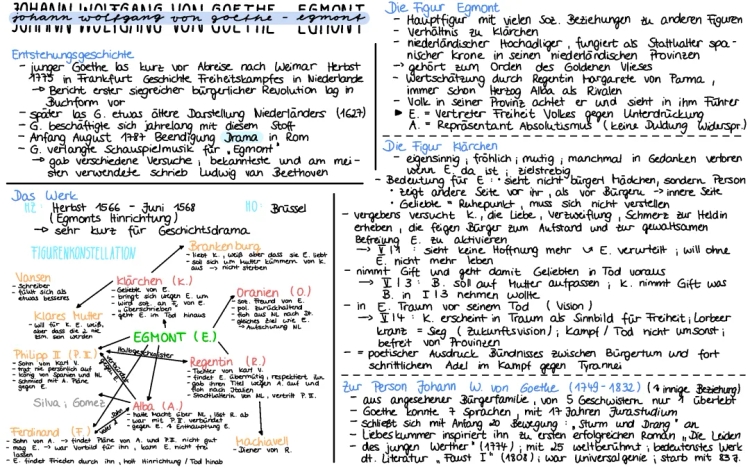 JOHANN WOLFGANG VON GOETHE - EGMONT
johann wolfgang von goethe - egmont
JOHANN WOLFGANG VON GOETHE - EGMONT
Entstehungsgeschichte
- junger Goethe las kurz vor Abreise nach Weimar Herbst
1775 in Frankfurt Geschichte Freiheitskampfes in Niederlande
→ Bericht erster siegreicher bürgerlicher Revolution lag in
Buchform vor
- später las G. etwas ältere Darstellung Niederländers (1627)
- G. beschäftigte sich jahrelang mit diesem Stoff
- Anfang August 1787 Beendigung Drama in Rom
- G. verlangte Schauspielmusik für "Egmont"
→ gab verschiedene Versuche, bekannteste und am mei-
sten verwendete schrieb Ludwig van Beethoven
Das Werk
HZ: Herbst 1566 - Juni 1568
(Egmonts Hinrichtung)
HO: Brüssel
→ sehr kurz für Geschichtsdrama
FIGURENKONSTELLATION
Brankenburg
- liebt K., weiß aber dass sie E. liebt
- soll sich um Mutter kümmern von K.
aus → nicht sterben
Vansen
- Schreiber
- fühlt sich als
etwas besseres
Klärchen (K.)
- Geliebte von E.
- bringt sich wegen E. um
- wird sot. an E. von E.
überschrieben
- geht E. im Tod hinaus
Oranien (O.)
- sot. Freund von E.
- pol. zurückhaltend
- floh aus NL nach Dt.
- gleiches Ziel wie E.
→ Aufteilung NL
Klares Mutter
- will für K. E. weiß,
aber dass die 2 nie
zsm. sein werden
EGMONT (E.)
Halbgeschwister
Philipp II (P. II.)
- Sohn von Karl V.
- trat nie persönlich auf
- König von Spanien und NL
- schmied mit A. Pläne
gegen E.
Regentin (R.)
- Tochter von Karl V.
- findet E. übermütig, respektiert ihn
- gab ihren Titel wegen A. auf und
floh nach Italien
- Statthalterin von NL, vertritt P. II.
Silva, Gomez
Alba (A.)
- hatte Macht über NL, löst R. ab
- war mit P. II. verbündet
- gegen E. & Enthauptung E.
Ferdinand (F.)
- Sohn von A. → findet Pläne von A. und P.II. nicht gut
- mag E. → war Vorbild für ihn, kann E. nicht frei
lassen
- E. findet Frieden durch ihn, holt Hinrichtung / Tod hinab
Machiavell
- Diener von R.
Die Figur Egmont
- Hauptfigur mit vielen soz. Beziehungen zu anderen Figuren
- Verhältnis zu Klärchen
- niederländischer Hochadliger, fungiert als Statthalter spa-
nischer Krone in seinen niederländischen Provinzen
→ gehört zum Orden des Goldenen Vlieses
- Wertschätzung durch Regentin Margarete von Parma,
immer schon Herzog Alba als Rivalen
- Volk in seiner Provinz achtet er und sieht in ihm Führer
▶ E. = Vertreter Freiheit Volkes gegen Unterdrückung
A. = Repräsentant Absolutismus (keine Duldung Widerspr.)
Die Figur Klärchen
- eigensinnig, fröhlich, mutig, manchmal in Gedanken verloren
wenn E. da ist, zielstrebig
- Bedeutung für E.: • sieht nicht bürgerl. Mädchen, sondern Person
• zeigt andere Seite vor ihr, als vor Bürgern → innere Seite
• Geliebte = Ruhepunkt, muss sich nicht verstellen
- vergebens versucht K., die Liebe, Verzweiflung, Schmerz zur Heldin
erheben, die feigen Bürger zum Aufstand und zur gewaltsamen
Befreiung E. zu aktivieren
→ V|1: sieht keine Hoffnung mehr E. verurteilt; will ohne
E. nicht mehr leben
- nimmt Gift und geht damit Geliebten in Tod voraus
→ V|3: B. soll auf Mutter aufpassen; K. nimmt Gift was
B. in V|3 nehmen wollte
- in E. Traum vor seinem Tod (Vision)
→ V|4: K. erscheint in Traum als Sinnbild für Freiheit; Lorbeer
kranz = Sieg (Zukunftsvision); Kampf / Tod nicht umsonst;
befreit von Provinzen
- = poetischer Ausdruck Bündnisses zwischen Bürgertum und fort
schrittlichem Adel im Kampf gegen Tyrannei
Zur Person Johann W. von Goethe (1749-1832) (1 innige Beziehung)
- aus angesehener Bürgerfamilie, von 5 Geschwistern nur 1 überlebt
- Goethe konnte 7 Sprachen, mit 17 Jahren Jurastudium
- schließt sich mit Anfang 20 Bewegung: "Sturm und Drang" an
- Liebeskummer inspiriert ihn zu ersten erfolgreichen Roman "Die Leiden
des jungen Werther" (1774); mit 25 weltberühmt, bedeutendstes Werk
dt. Literatur "Faust I" (1808); war Universalgenie; starb mit 83 J.